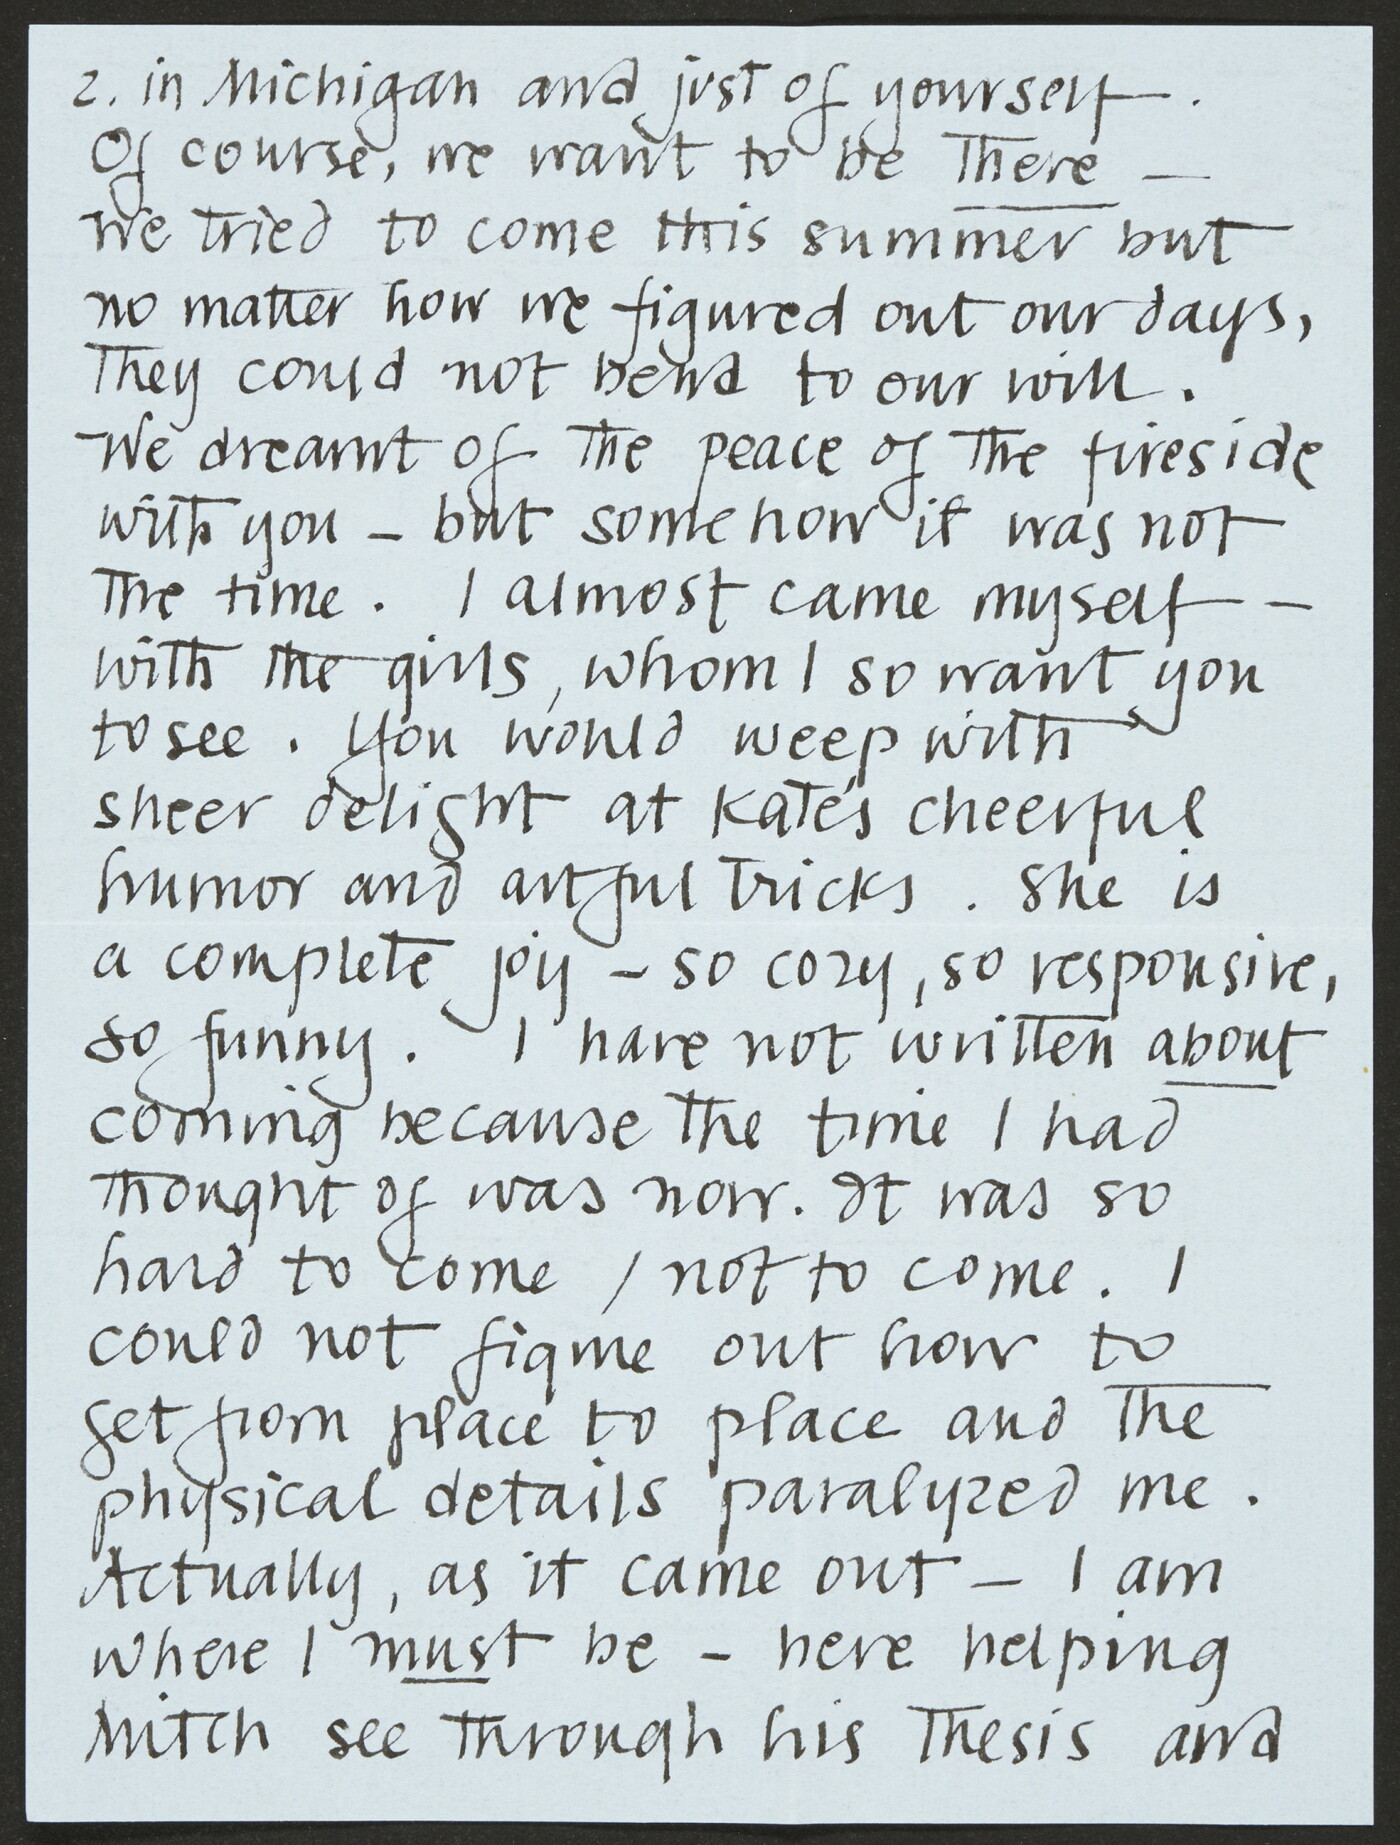 2. in Michigan and just of yourself.
Of course, we want to be There —
We tried to come this summer but
no matter how we figured out our days,
They could not bend to our will.
We dreamt of The peace of The fireside
with you – but somehow it was not
The time. I almost came myself –
with the girls, whom I so want you
to see. You would weep with
sheer delight at Kate's cheerful
humor and artful Tricks. She is
a complete joy – so cozy, so responsive,
so funny. I have not written about
coming because The time I had
Thought of was now. It was so
hard to come / not to come. I
could not figure out how to
get from place to place and The
physical details paralyzed me.
Actually, as it came out – I am
where I must be – here helping
Mitch see Through his Thesis and